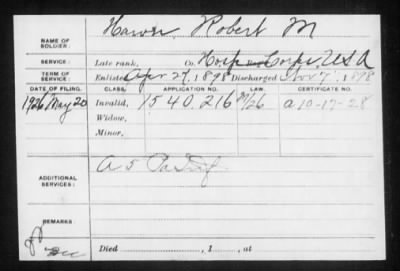 NAME OF SOLDIER: Hawn, Robert M
SERVICE: Late rank, Co. Hosp Corps, USA
TERM OF SERVICE: Enlisted Apr 27, 1898 Discharged Nov 7, 1898
DATE OF FILING. CLASS. APPLICATION NO. LAW. CERTIFICATE NO.
1926 May 20 Invalid, 1540,216 a 10-17-28
Widow,
Minor,
ADDITIONAL SERVICES: a 5
REMARKS:
Died , 1 , at